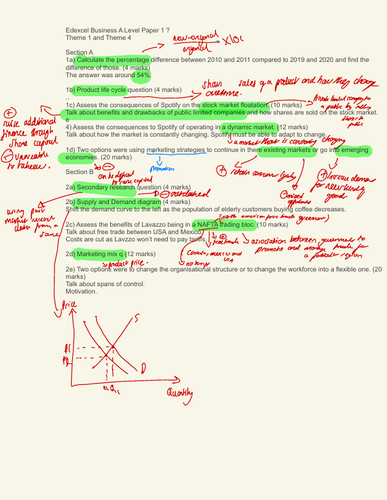 Edexcel Business A Level Paper 1 ?
Theme 1 and Theme 4
new-original
original
x100
Section A
1a) Calculate the percentage difference between 2010 and 2011 compared to 2019 and 2020 and find the
difference of those. (4 marks)
The answer was around 54%.
shows sales of a product and how they change
overtime.
1b) Product life cycle question (4 marks)
+
raise additional
finance through
share capital
- vulnerable
to takeover.
1c) Assess the consequences of Spotify on the stock market floatation. (10 marks)
Private limited company to
a public by selling
shares to
public
Talk about benefits and drawbacks of public limited companies and how shares are sold on the stock market.
4) Assess the consequences to Spotify of operating in a dynamic market. (12 marks)
Talk about how the market is constantly changing. Spotify must be able to adapt to change.
a market that is constantly changing
1d) Two options were using marketing strategies to continue in there existing markets or go into emerging
economies. (20 marks)
promotion
Section B
2a) Secondary research question (4 marks)
2b) Supply and Demand diagram (4 marks)
Shift the demand curve to the left as the population of elderly customers buying coffee decreases.
2c) Assess the benefits of Lavazzo being in a NAFTA trading bloc. (10 marks)
Talk about free trade between USA and Mexico.
Costs are cut as Lavzzo won't need to pay
association between governments to
promote and manage trade for
a particular region
Canada, mexico and
USA
2d) Marketing mix q (12 marks)
product price
2e) Two options were to change the organisational structure or to change the workforce into a flexible one. (20
marks)
Talk about spans of control.
Motivation.
Price
S
P1
D
Quantity